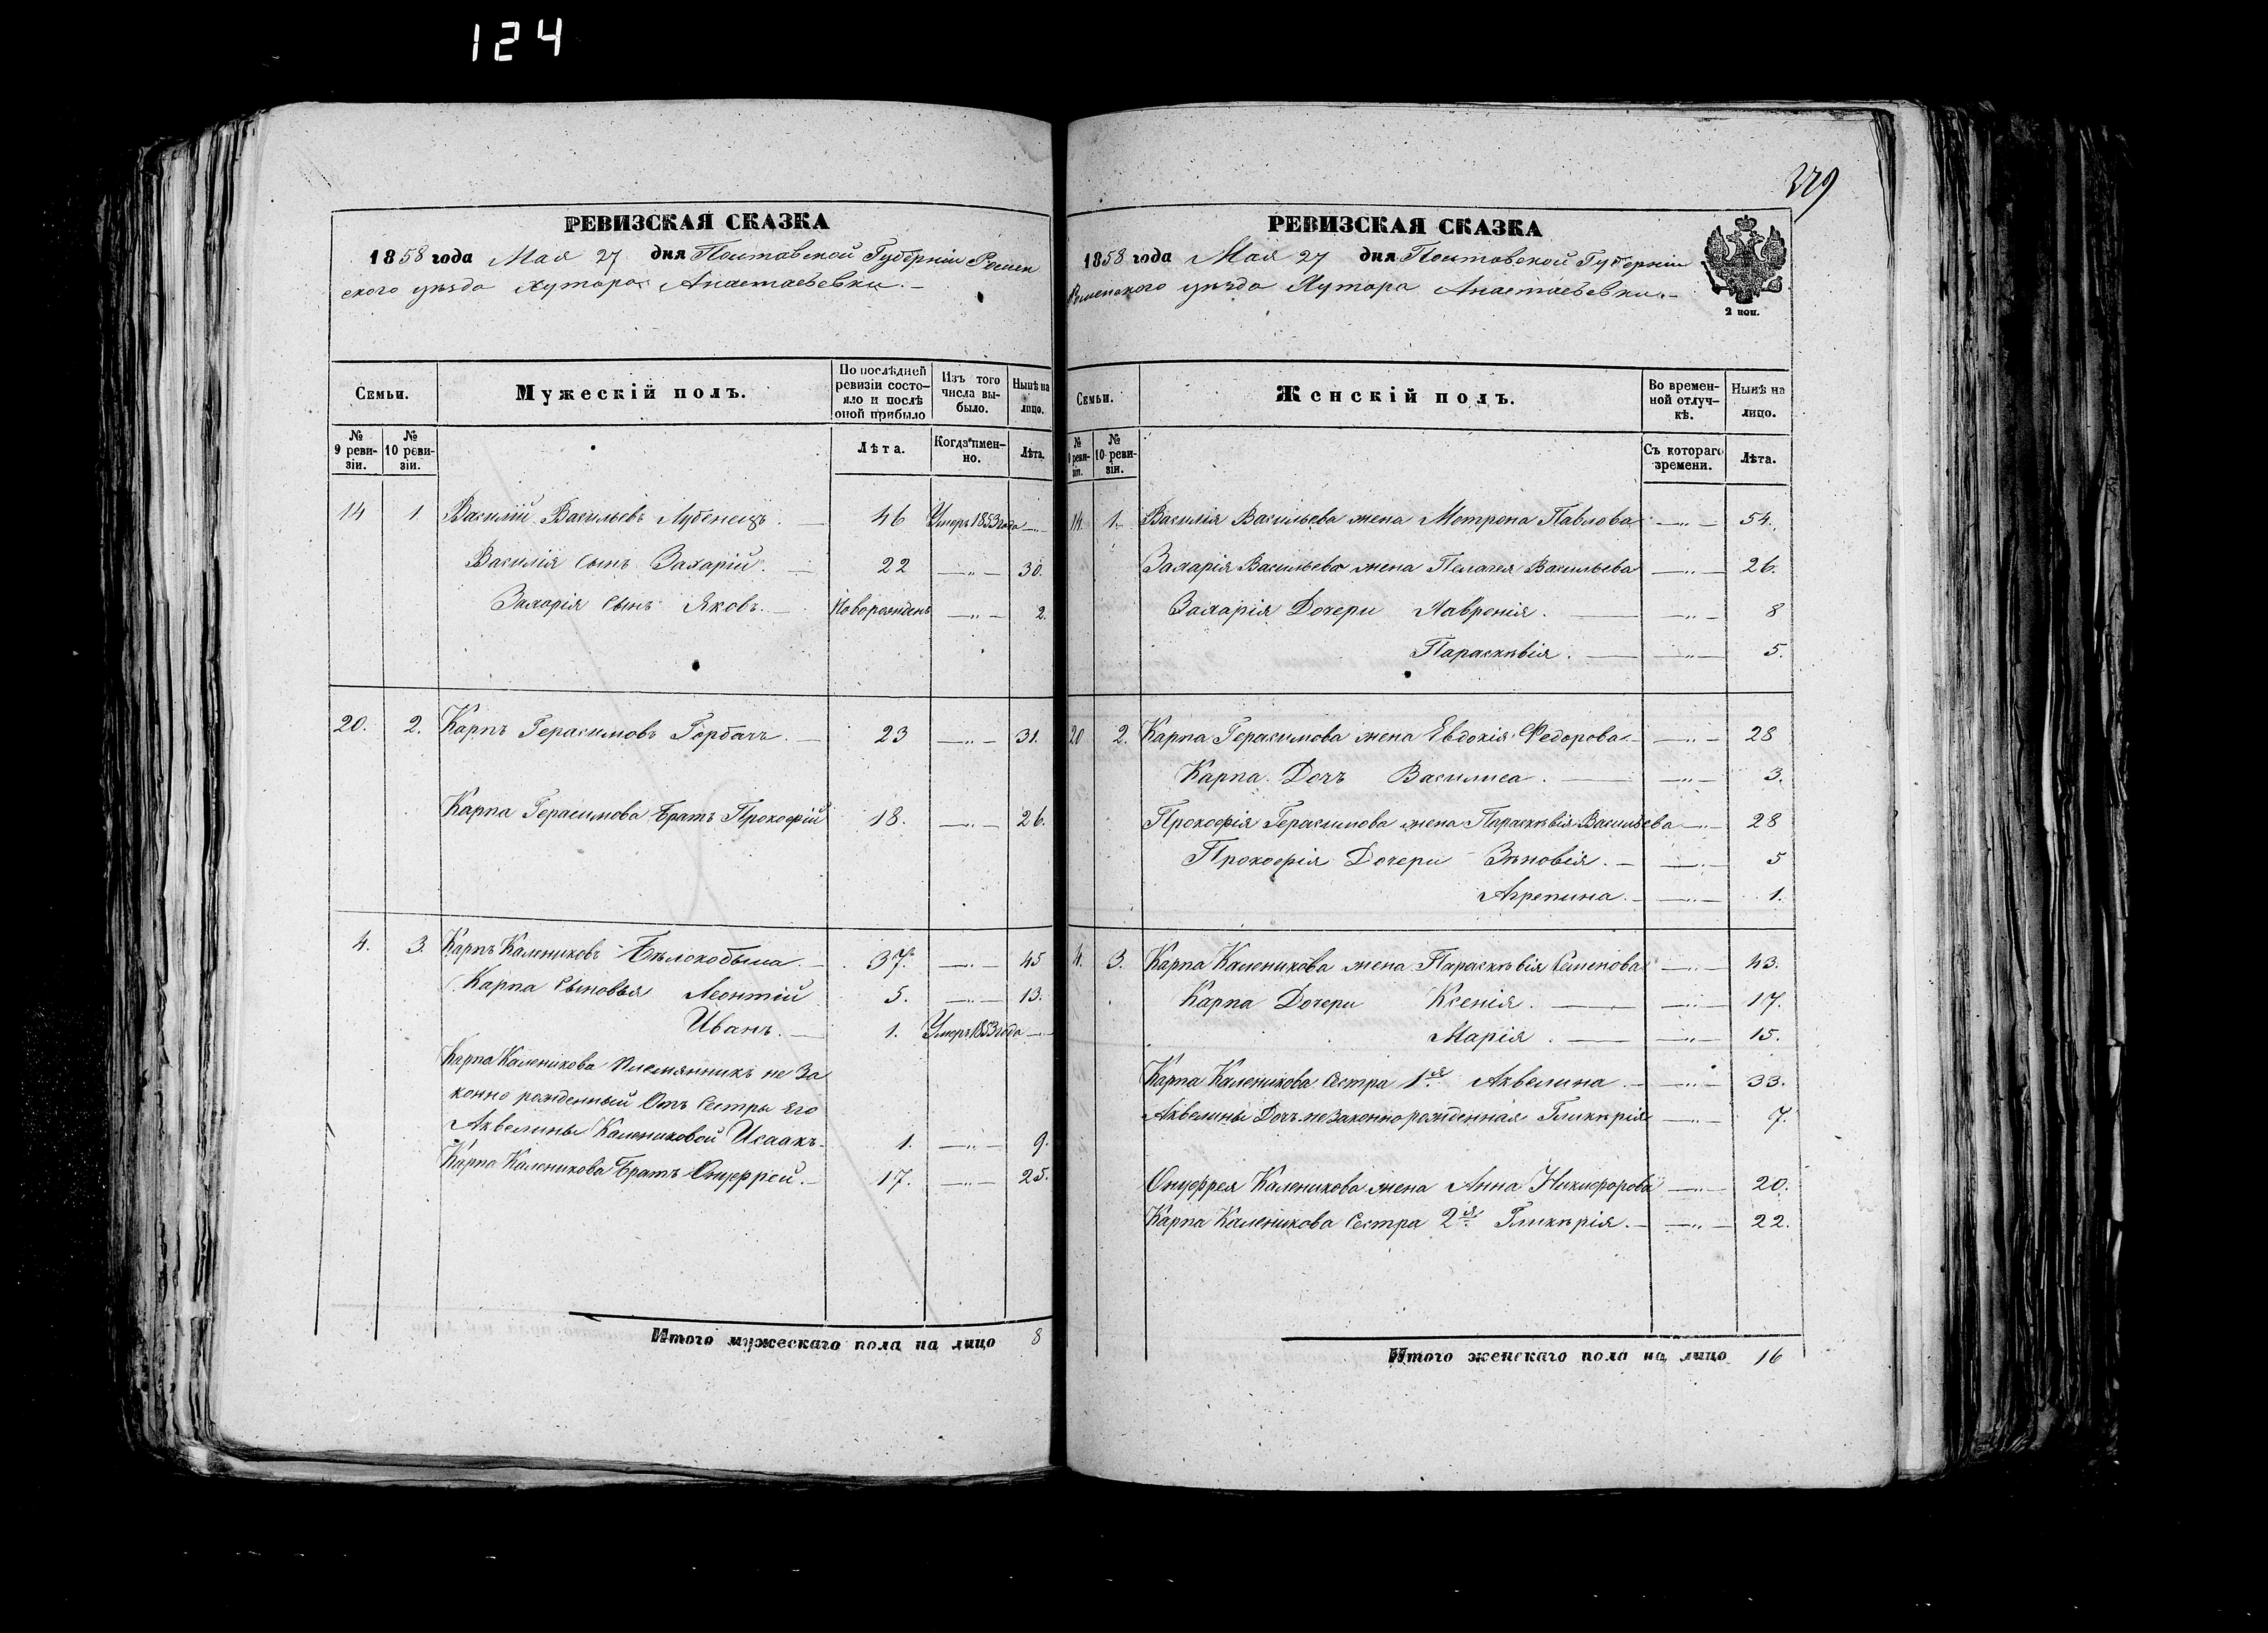 124
329
РЕВИЗСКАЯ СКАЗКА
1858 года Мая 27 дня Полтавской Губерніи Ромен
ского уѣзда Хутора Анастасьевки.
Семьи.
Мужескій полъ.
По послѣдней ревизіи состояло и послѣ оной прибыло
Изъ того числа выбыло.
Нынѣ на лицо.
№ 9 ревизіи.
№ 10 ревизіи.
Лѣта.
Когда именно.
Лѣта.
14 1. Василій Васильевъ Лубенецъ. 46 Умеръ 1853 года
Василія Сынъ Захарій. 22 —„— 30.
Захарія Сынъ Яковъ. Новорожденъ —„— 2.
20. 2. Карпъ Герасимовъ Горбачъ. 23 —„— 31.
Карпа Герасимова Братъ Прокофій 18. —„— 26.
4. 3. Карпъ Калниковъ Бѣлокобыла. 37. —„— 45
Карпа Сыновья Леонтій 5. —„— 13.
Иванъ. 1. Умеръ 1853 года
Карпа Каленикова племянникъ не за
конно рожденный Отъ Сестры Его
Аквелины Калениковой Исаакъ. 1. —„— 9.
Карпа Каленикова Братъ Онуфрей. 17. —„— 25.
Итого мужескаго пола на лицо 8
РЕВИЗСКАЯ СКАЗКА
1858 года Мая 27 дня Полтовской Губерніи
Роменского уѣзда Хутора Анастасьевки.
2 коп.
Семьи.
Женскій полъ.
Во временной отлучкѣ.
Нынѣ на лицо.
№ 9 ревизіи.
№ 10 ревизіи.
Съ котораго времени.
Лѣта.
14. 1. Василія Васильева жена Мотрона Павлова —„— 54.
Захарія Васильева жена Пелагея Васильева —„— 26.
Захарія Дочери Лавренія. —„— 8
Параскѣвія. —„— 5.
20 2. Карпа Герасимова жена Евдокія Федорова —„— 28
Карпа Дочъ Василиса. —„— 3.
Прокофія Герасимова жена Параскѣвія Васильева —„— 28
Прокофія Дочери Зѣновія. —„— 5
Агрепина. —„— 1.
4. 3. Карпа Каленикова жена Параскѣвія Семенова —„— 43.
Карпа Дочери Ксенія. —„— 17.
Марія. —„— 15.
Карпа Каленикова Сестра 1я Аквелина —„— 33.
Аквелины Дочъ незаконнорожденная Гликѣрія —„— 7.
Онуфрея Каленикова жена Анна Никифорова —„— 20.
Карпа Каленикова Сестра 2я Гликѣрія. —„— 22.
Итого женскаго пола на лицо 16